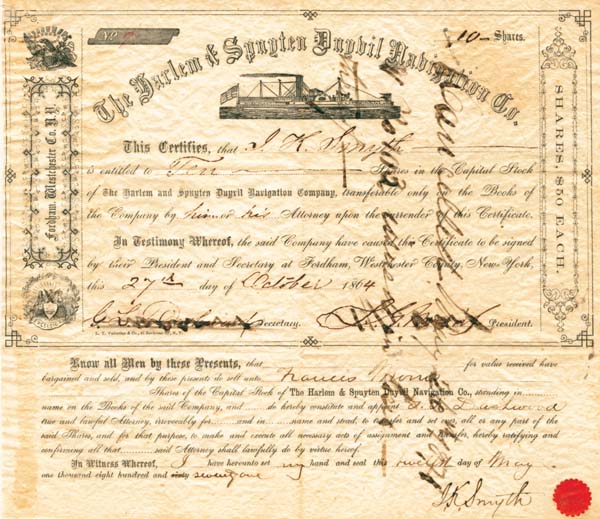 No
10 Shares.
The Harlem & Spuyten Duyvil Navigation Co.
Fordham, Westchester Co. N.Y.
SHARES $50 EACH.
EXCELSIOR
This Certifies, that J. K. Smyth
is entitled to Ten Shares in the Capital Stock
of The Harlem and Spuyten Duyvil Navigation Company, transferable only on the Books of
the Company by him or his Attorney upon the surrender of this Certificate.
In Testimony Whereof, the said Company have caused this Certificate to be signed
by their President and Secretary at Fordham, Westchester County, New-York,
this 27th day of October 1864
Secretary. President.
Know all Men by these Presents, that for value received have
bargained and sold, and by these presents do sell unto Francis
Shares of the Capital Stock of The Harlem & Spuyten Duyvil Navigation Co., standing in
name on the Books of the said Company, and do hereby constitute and appoint
true and lawful Attorney, irrevocably for and in name and stead, to transfer and set over all or any part of the
said Shares, and for that purpose, to make and execute all necessary acts of assignment and transfer, hereby ratifying and
confirming all that said Attorney shall lawfully do by virtue hereof.
In Witness Whereof, I have hereunto set my hand and seal this twelfth day of May
one thousand eight hundred and sixty seventy one
J. K. Smyth